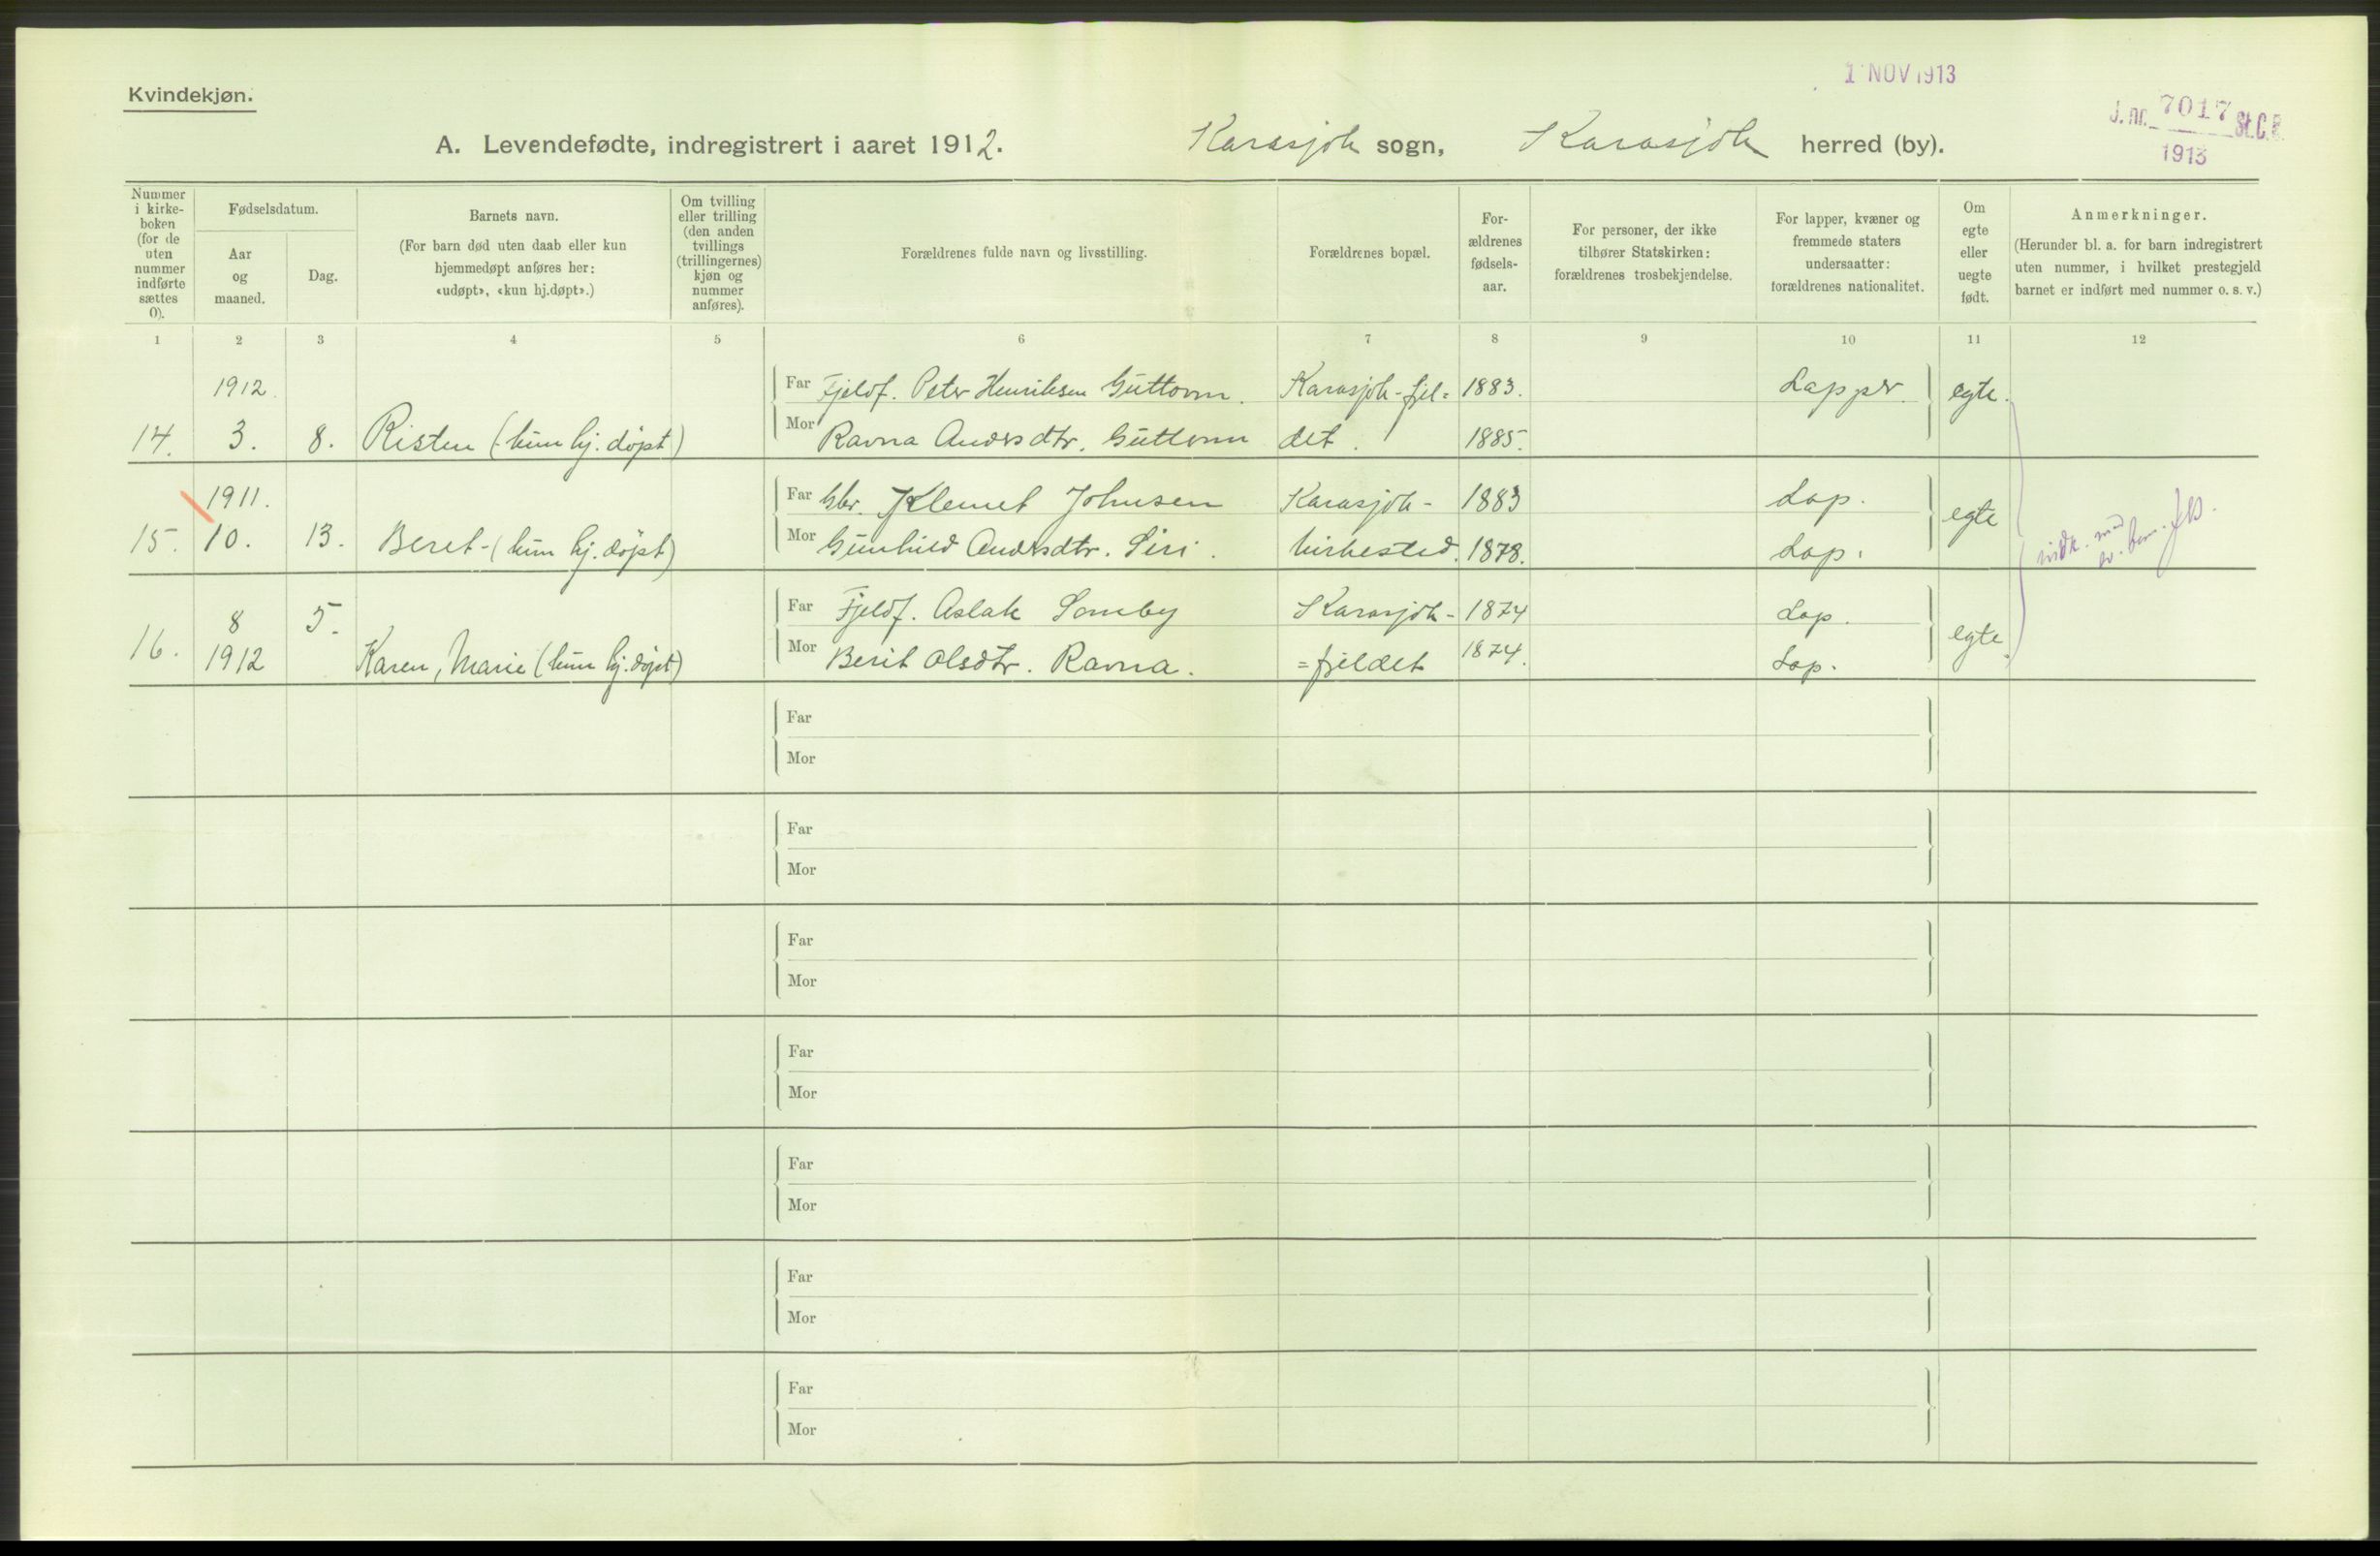 1 NOV 1913
Kvindekjøn.
J. nr. 7017 St.C.B.
1913
A. Levendefødte, indregistrert i aaret 1912. Karasjok sogn, Karasjok herred (by).
Nummer i kirke-boken (for de uten nummer indførte sættes 0).
Fødselsdatum.
Aar og maaned.
Dag.
Barnets navn.
(For barn død uten daab eller kun hjemmedøpt anføres her: «udøpt», «kun hj.døpt».)
Om tvilling eller trilling (den anden tvillings (trillingernes) kjøn og nummer anføres).
Forældrenes fulde navn og livsstilling.
Forældrenes bopæl.
For-ældrenes fødsels-aar.
For personer, der ikke tilhører Statskirken: forældrenes trosbekjendelse.
For lapper, kvæner og fremmede staters undersaatter: forældrenes nationalitet.
Om egte eller uegte født.
Anmerkninger.
(Herunder bl. a. for barn indregistrert uten nummer, i hvilket prestegjeld barnet er indført med nummer o. s. v.)
1 2 3 4 5 6 7 8 9 10 11 12
1912. Far Fjeldf. Peter Henriksen Guttorm. Karasjok-fjel= 1883. Lapper. egte.
14. 3. 8. Risten (kun hj. døpt) Mor Ravna Andersdtr. Guttorm det. 1885.
1911. Far Gbr. Klemet Johnsen Karasjok- 1883 Lap. egte
15. 10. 13. Beret-(kun hj. døpt) Mor Gunhild Andersdtr. Siri. kirkested. 1878. Lap.
8 5. Far Fjeldf. Aslak Somby Karasjok- 1874 Lap. egte.
16. 1912 Karen, Marie (kun hj. døpt) Mor Berit Olsdtr. Ravna. =fjeldet 1874. Lap.
Far
Mor
Far
Mor
Far
Mor
Far
Mor
Far
Mor
Far
Mor
Far
Mor